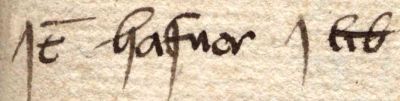 It hafner j lib